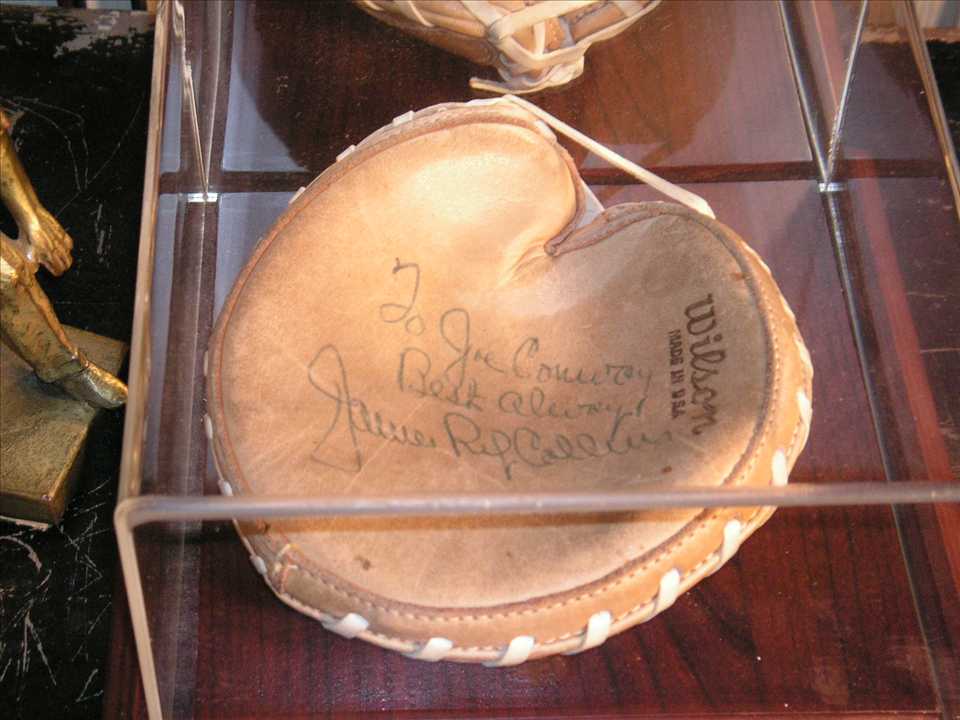 To Joe Conway
Best Always
James Rip Collins
Wilson
MADE IN USA